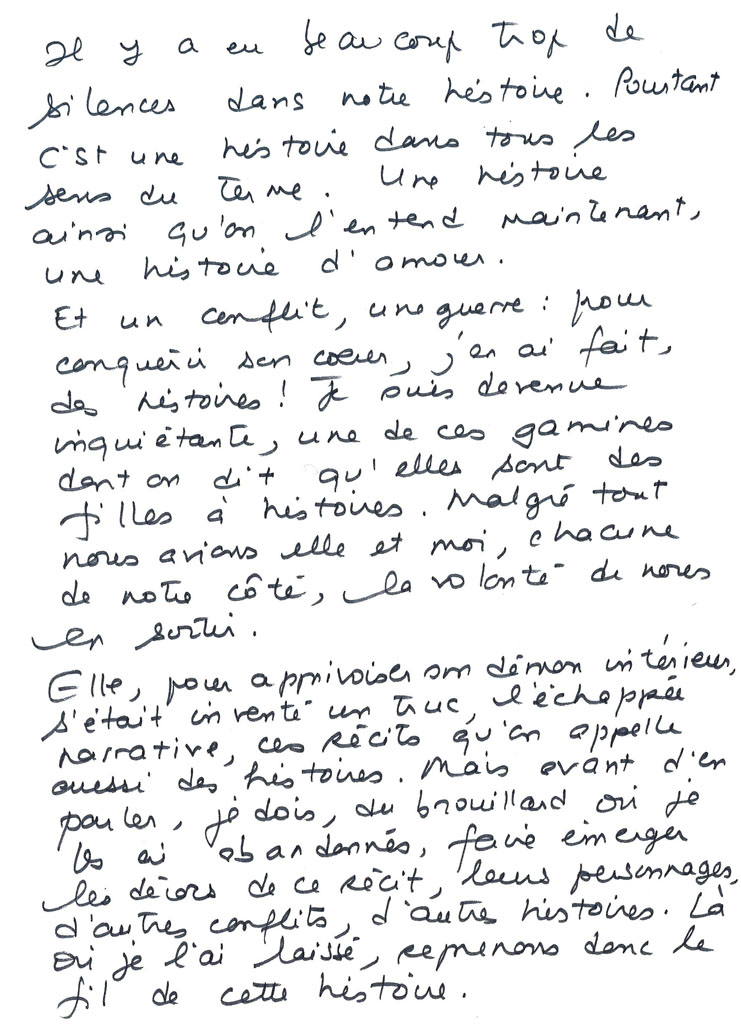 Il y a eu beaucoup trop de
silences dans notre histoire. Pourtant
c'est une histoire dans tous les
sens du terme. Une histoire
ainsi qu'on l'entend maintenant,
une histoire d'amour.
Et un conflit, une guerre : pour
conquérir son cœur, j'en ai fait,
des histoires ! Je suis devenue
inquiétante, une de ces gamines
dont on dit qu'elles sont des
filles à histoires. Malgré tout
nous avions elle et moi, chacune
de notre côté, la volonté de nous
en sortir.
Elle, pour apprivoiser son démon intérieur,
s'était inventé un truc, l'échappée
narrative, ces récits qu'on appelle
aussi des histoires. Mais avant d'en
parler, je dois, du brouillard où je
les ai abandonnés, faire émerger
les décors de ce récit, leurs personnages,
d'autres conflits, d'autres histoires. Là
où je l'ai laissé, reprenons donc le
fil de cette histoire.